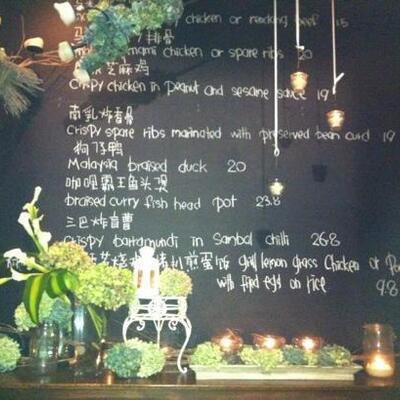 chicken or rendang beef 15
chicken or spare ribs 20
芝麻鸡
Crispy chicken in Peanut and sesame sauce 19
南乳炸香骨
Crispy spare ribs marinated with preserved bean curd 19
鸭
Malaysia braised duck 20
咖喱霸王鱼头煲
braised curry fish head pot 23.8
三巴炸盲曹
Crispy barramundi in Sambal chilli 26.8
煎蛋饭 grill lemon grass Chicken or
with fried egg on rice 9.8